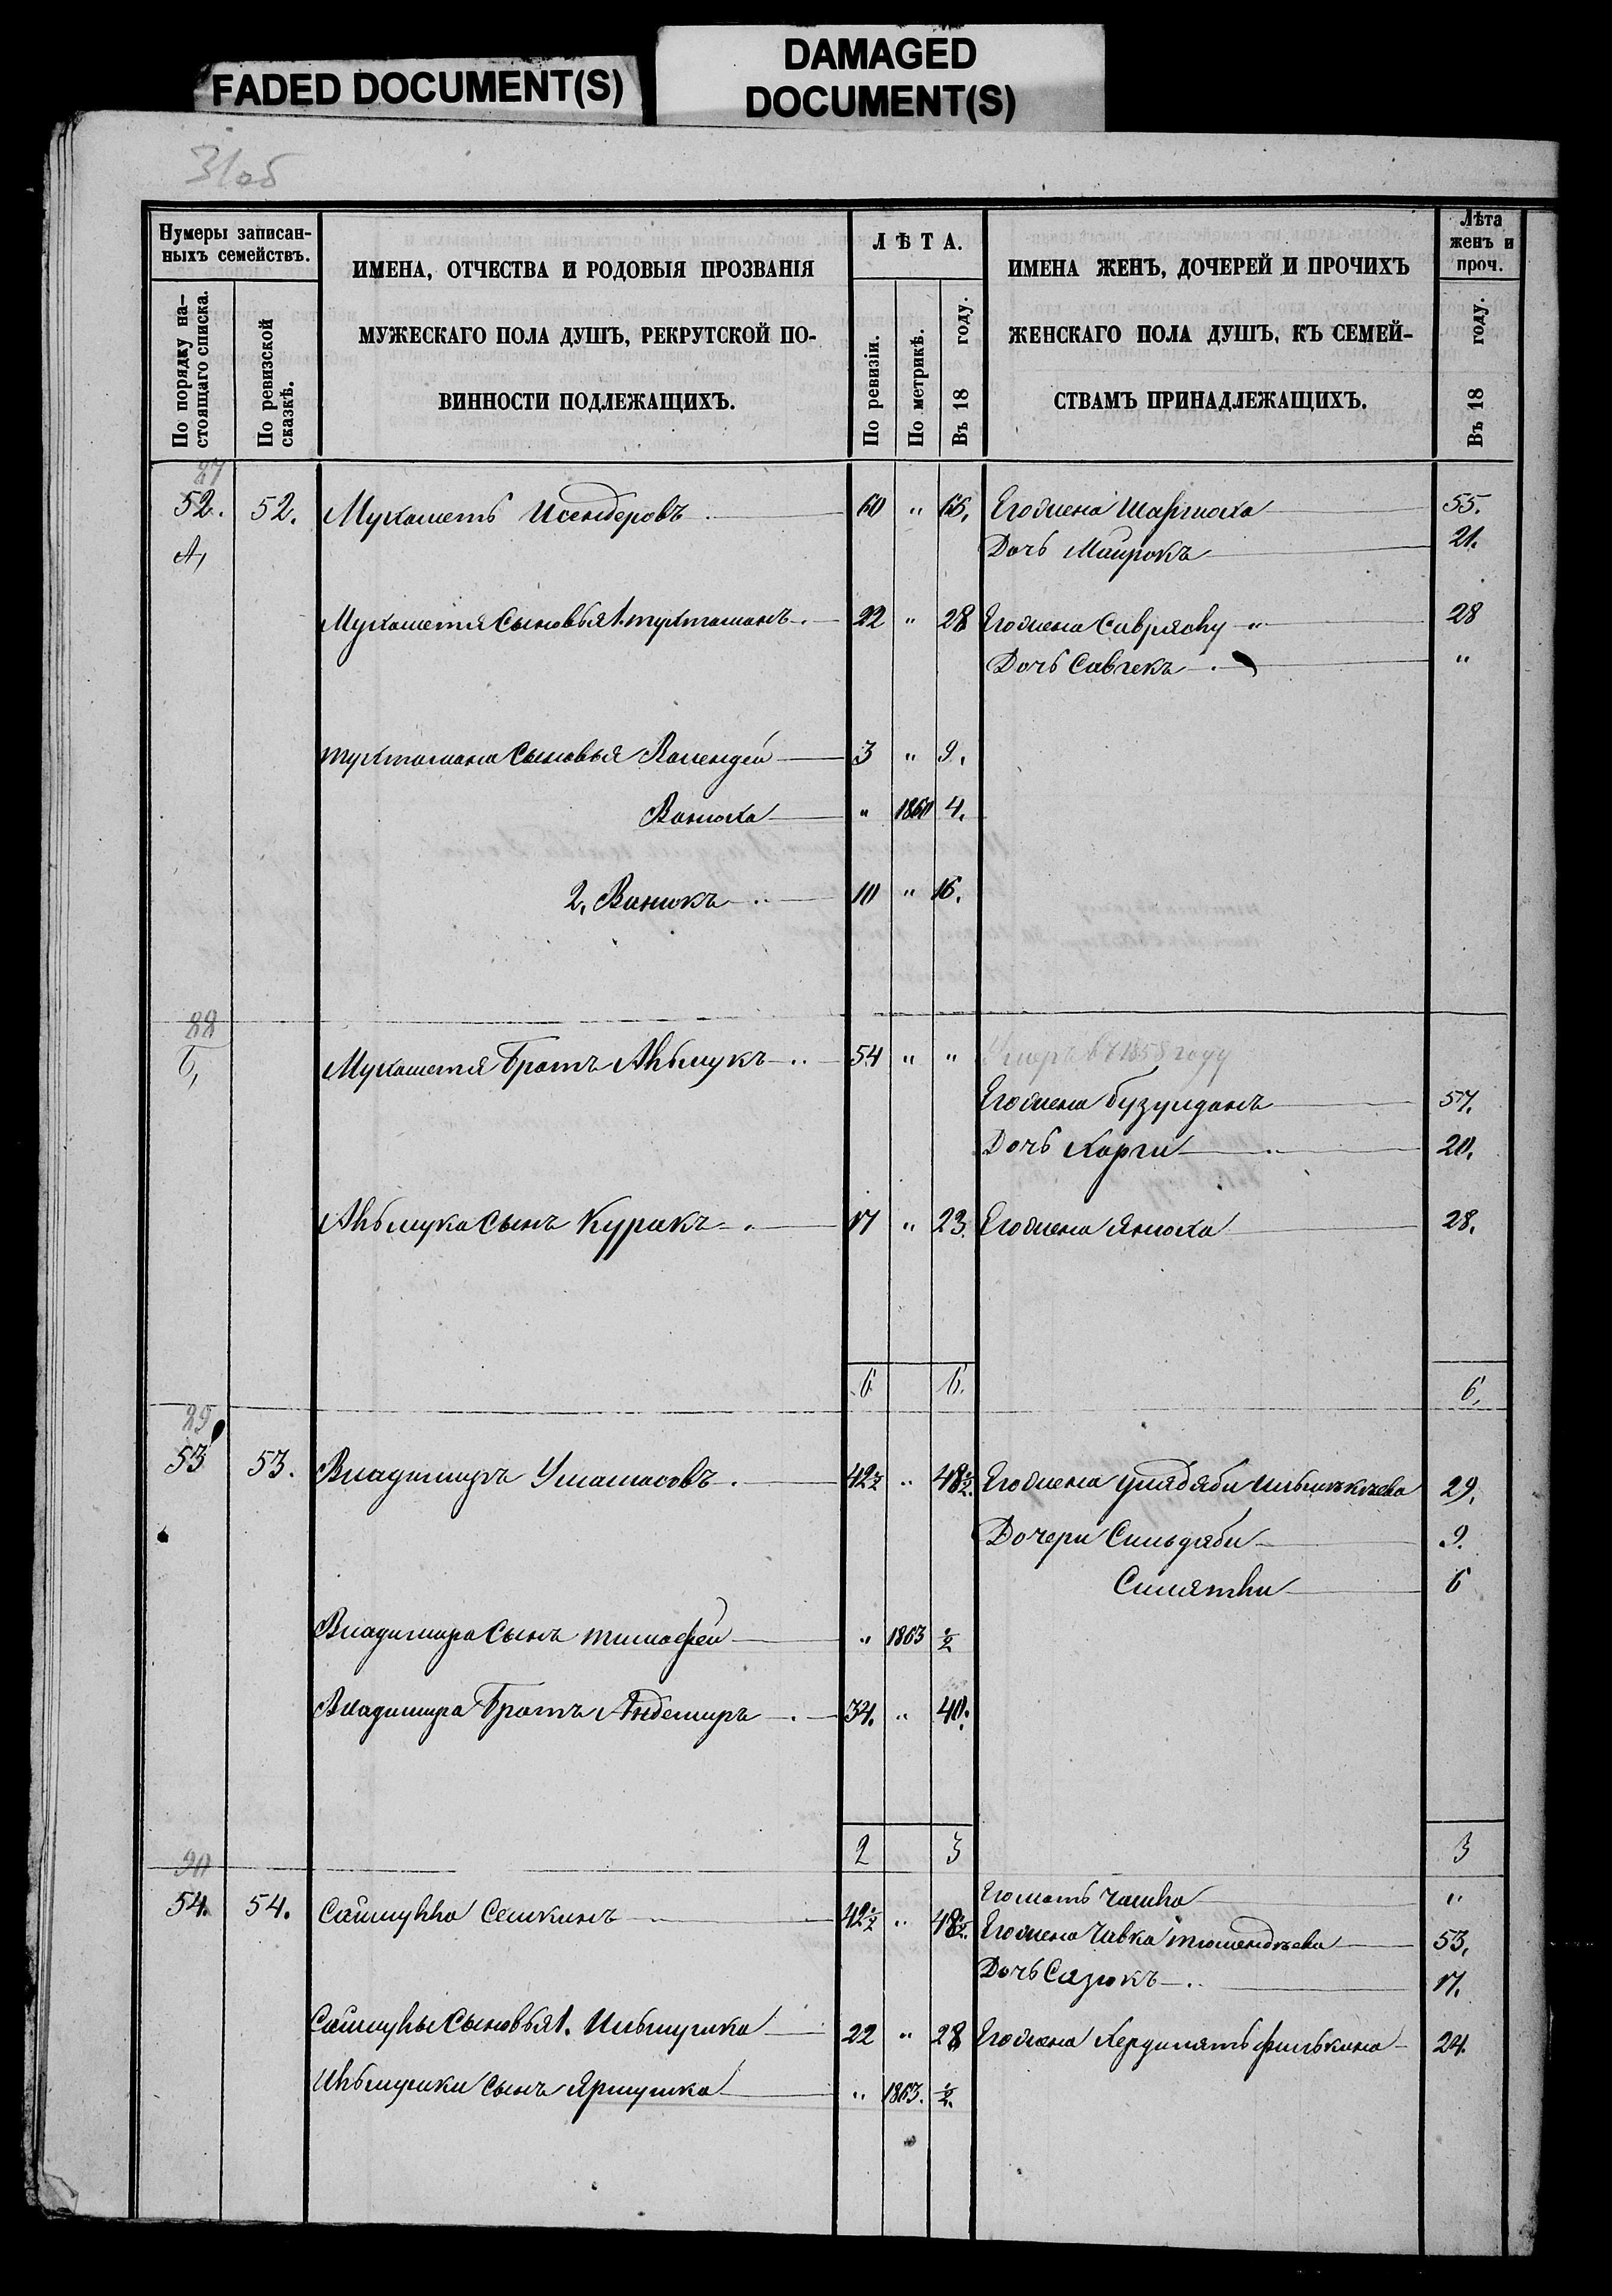 FADED DOCUMENT(S)
DAMAGED
DOCUMENT(S)
31об
Нумеры записан-
ныхъ семействъ.
По порядку на-
стоящаго списка.
По ревизской
сказкѣ.
ИМЕНА, ОТЧЕСТВА И РОДОВЫЯ ПРОЗВАНІЯ
МУЖЕСКАГО ПОЛА ДУШЪ, РЕКРУТСКОЙ ПО-
ВИННОСТИ ПОДЛЕЖАЩИХЪ.
ЛѢТА.
По ревизіи.
По метрикѣ.
Въ 18 году.
ИМЕНА ЖЕНЪ, ДОЧЕРЕЙ И ПРОЧИХЪ
ЖЕНСКАГО ПОЛА ДУШЪ, КЪ СЕМЕЙ-
СТВАМЪ ПРИНАДЛЕЖАЩИХЪ.
Лѣта
женъ и
проч.
Въ 18 году.
87
52. 52. Мухаметь Исендеровъ 60 " 66. Его жена 55.
А, Дочь Маирокъ 21.
Мухаметя Сыновья 1. тухтаманъ 22 " 28 Его жена 28
Дочь Савчекъ "
тухтамана Сыновья 3 " 9.
Ванюха " 1860 4.
2. Ванюкъ 10 " 16.
88
Б, Мухаметя Братъ 54 " " Умеръ въ 1858 году
Его жена 57.
Дочь Карги 20.
Сынъ Куракъ 17 " 23. Его жена Янюха 28.
6 6. 6,
89
53 53. Владимиръ 42½ " 48½. Его жена 29.
Дочери Сильдяби 9.
6
Владимира Сынъ тимофей " 1863 ½
Владимира Братъ Андемиръ 34. " 40.
2 3 3
90
54. 54. Семкинъ 42½ " 48½. Его мать "
Его жена Чавка 53.
Дочь Сазюкъ 17.
Сыновья 1. Ильмушка 22 " 28 Его жена филькина 24.
Ильмушки Сынъ Ярмушка " 1863. ½.